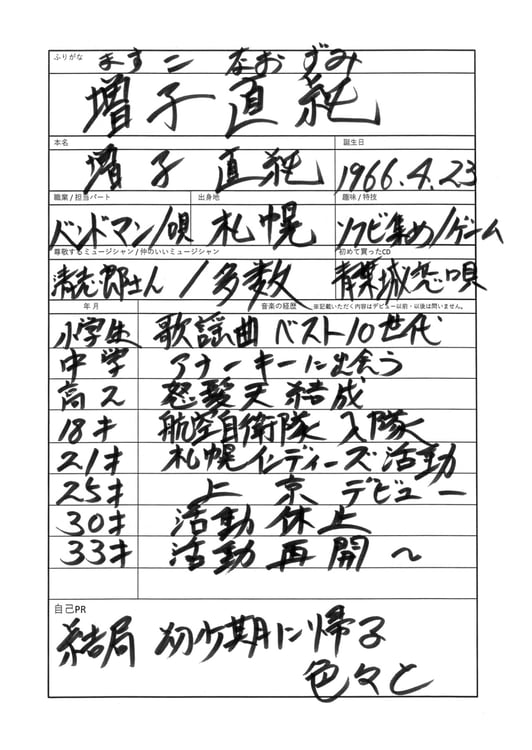 ふりがな ますこ なおずみ
増子直純
本名 誕生日
増子 直純 1966.4.23
職業 / 担当パート 出身地 趣味 / 特技
バンドマン/唄 札幌 ソフビ集め/ゲーム
尊敬するミュージシャン / 仲のいいミュージシャン 初めて買ったCD
清志郎さん/多数 青葉城恋唄
年 月 音楽の経歴 ※記載いただく内容はデビュー以前・以後は問いません。
小学生 歌謡曲 ベスト10世代
中学 アナーキーに出会う
高2 怒髪天結成
18才 航空自衛隊 入隊
21才 札幌インディーズ活動
25才 上京デビュー
30才 活動休止
33才 活動再開〜
自己PR
結局 幼少期に帰る
色々と